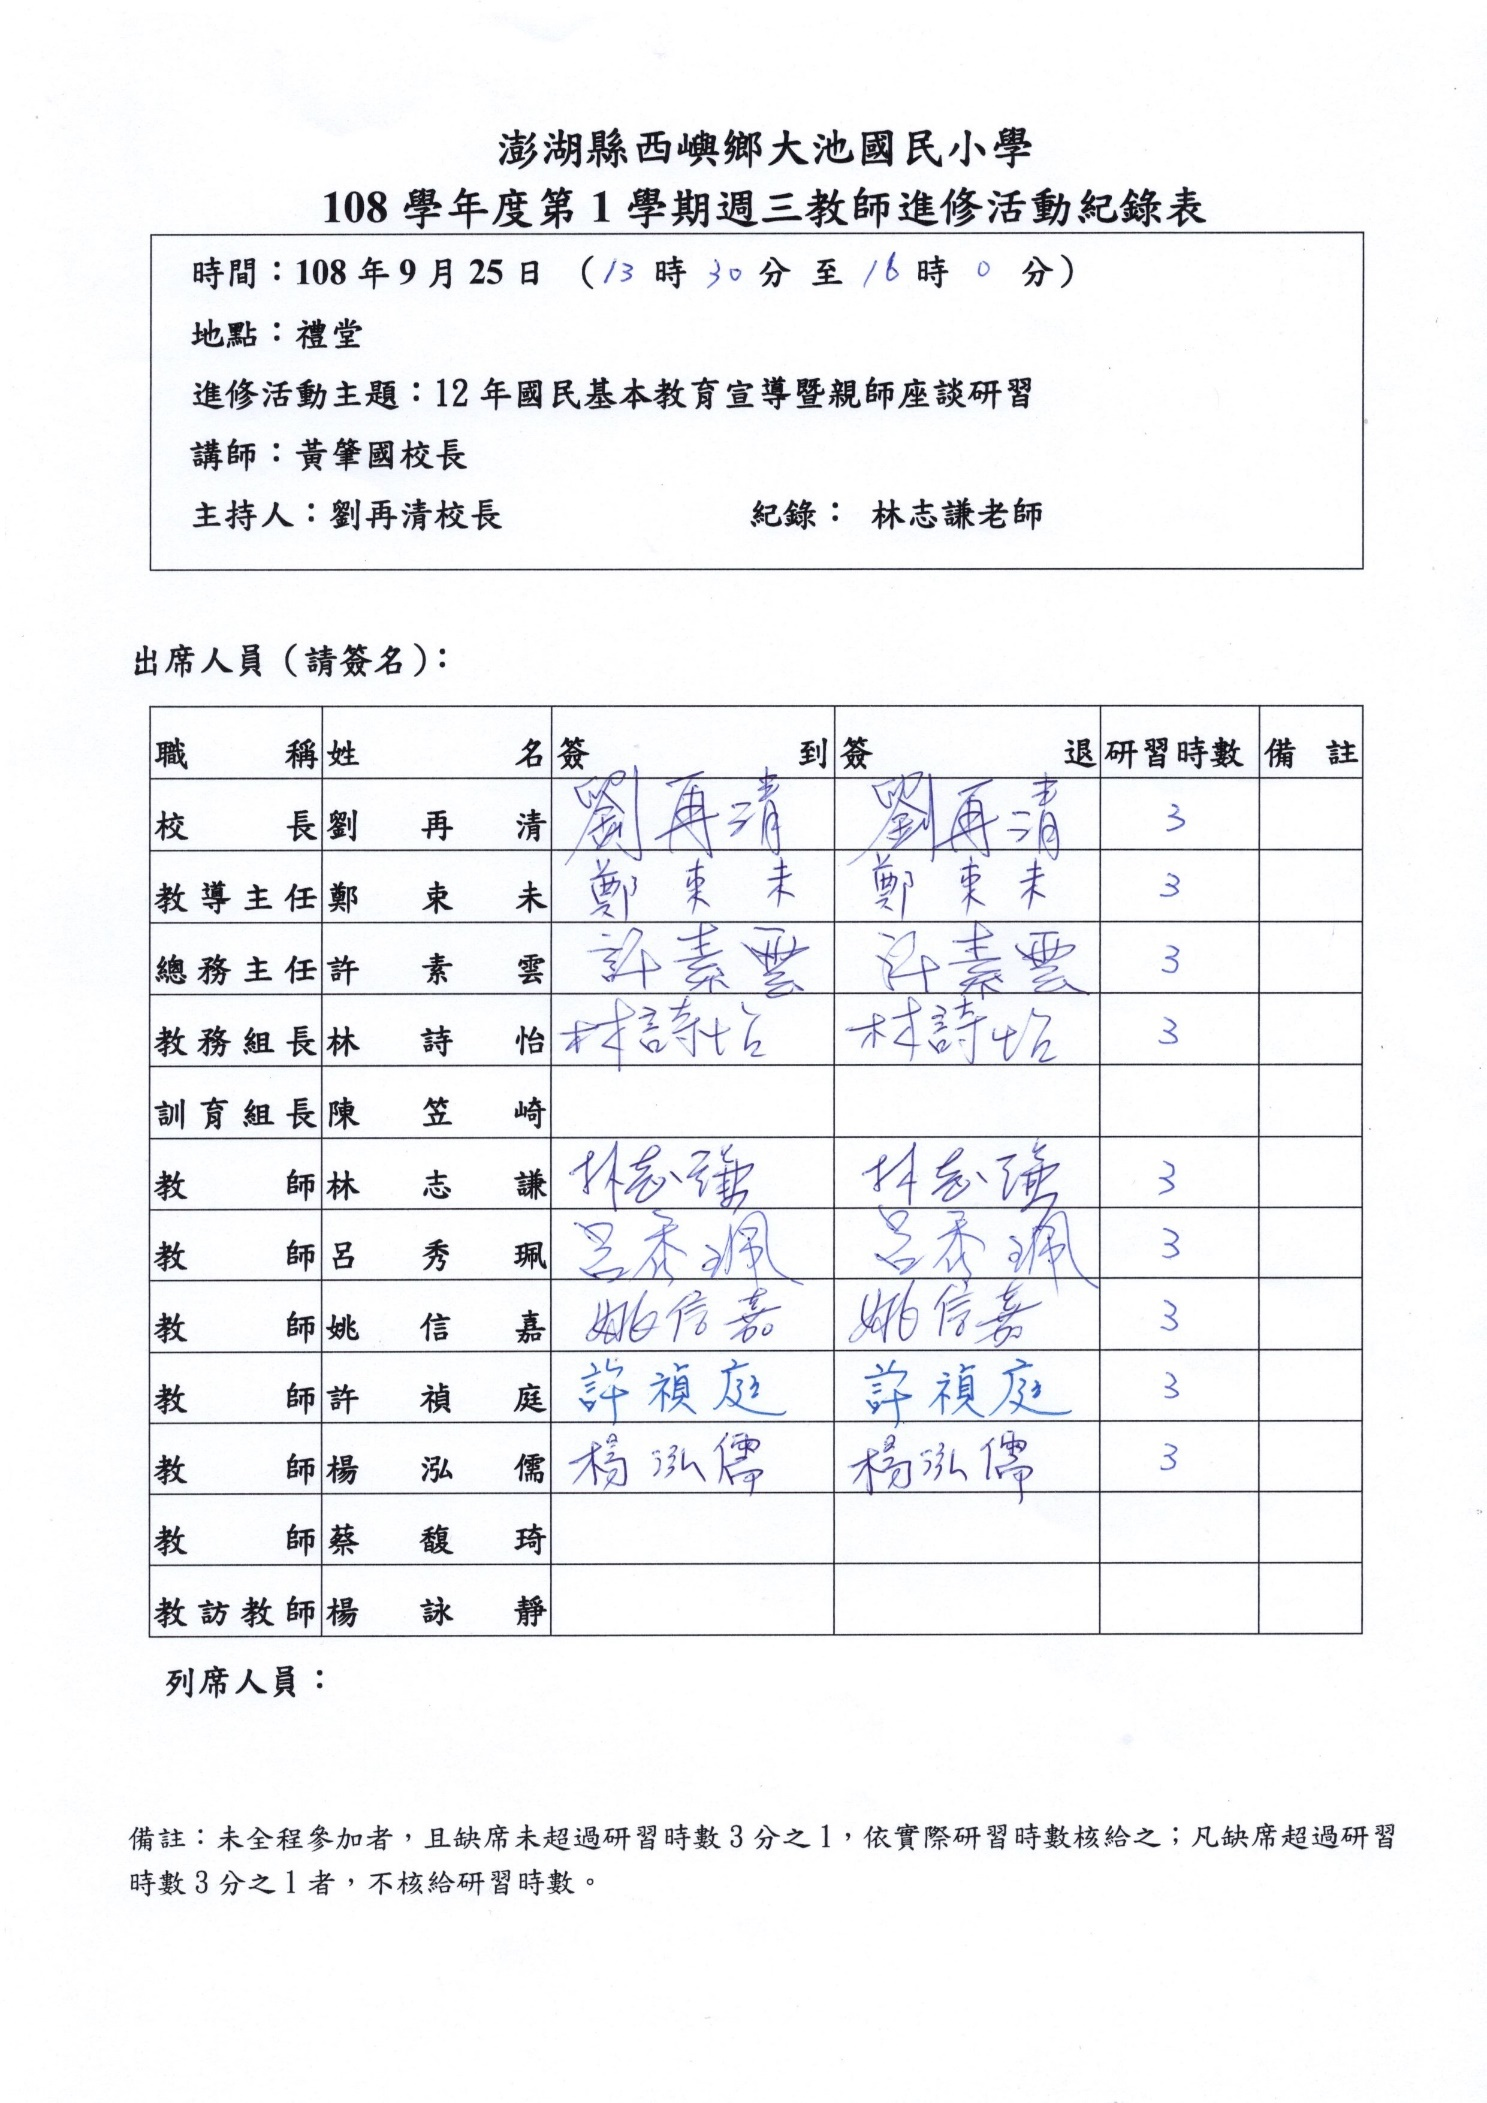 澎湖縣西嶼鄉大池國民小學
108 學年度第 1 學期週三教師進修活動紀錄表
時間：108 年 9 月 25 日 （13 時 30 分 至 16 時 0 分）
地點：禮堂
進修活動主題：12 年國民基本教育宣導暨親師座談研習
講師：黃肇國校長
主持人：劉再清校長 紀錄： 林志謙老師
出席人員（請簽名）：
職稱 姓名 簽到 簽退 研習時數 備註
校長 劉再清 劉再清 劉再清 3
教導主任 鄭束未 鄭束未 鄭束未 3
總務主任 許素雲 許素雲 許素雲 3
教務組長 林詩怡 林詩怡 林詩怡 3
訓育組長 陳笠崎
教師 林志謙 林志謙 林志謙 3
教師 呂秀珮 呂秀珮 呂秀珮 3
教師 姚信嘉 姚信嘉 姚信嘉 3
教師 許禎庭 許禎庭 許禎庭 3
教師 楊泓儒 楊泓儒 楊泓儒 3
教師 蔡馥琦
教訪教師 楊詠靜
列席人員：
備註：未全程參加者，且缺席未超過研習時數 3 分之 1，依實際研習時數核給之；凡缺席超過研習
時數 3 分之 1 者，不核給研習時數。